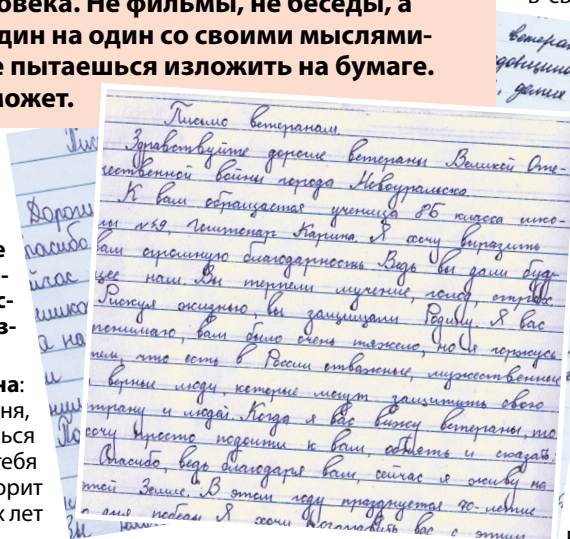 овека. Не фильмы, не беседы, а
дин на один со своими мыслями-
е пытаешься изложить на бумаге.
может.
Письмо ветеранам.
Здравствуйте дорогие ветераны Великой Оте-
чественной войны города Новоуральска.
К вам обращается ученица 8Б класса шко-
лы №49, Карина. Я хочу выразить
вам огромную благодарность. Ведь вы дали буду-
щее нам. Вы терпели мучение, голод, страх
Рискуя жизнью, вы защищали Родину. Я вас
понимаю, вам было очень тяжело, но я горжусь
тем, что есть в России отважные, мужественные
верные люди, которые могут защитить свою
страну и людей. Когда я вас вижу ветераны, то
хочу просто подойти к вам, обнять и сказать:
Спасибо, ведь благодаря вам, сейчас я живу на
этой Земле. В этом году празднуется 70-летие
со дня победы. Я хочу поздравить вас с этим
е
-
с-
з-
на:
ня,
ься
тебя
орит
х лет